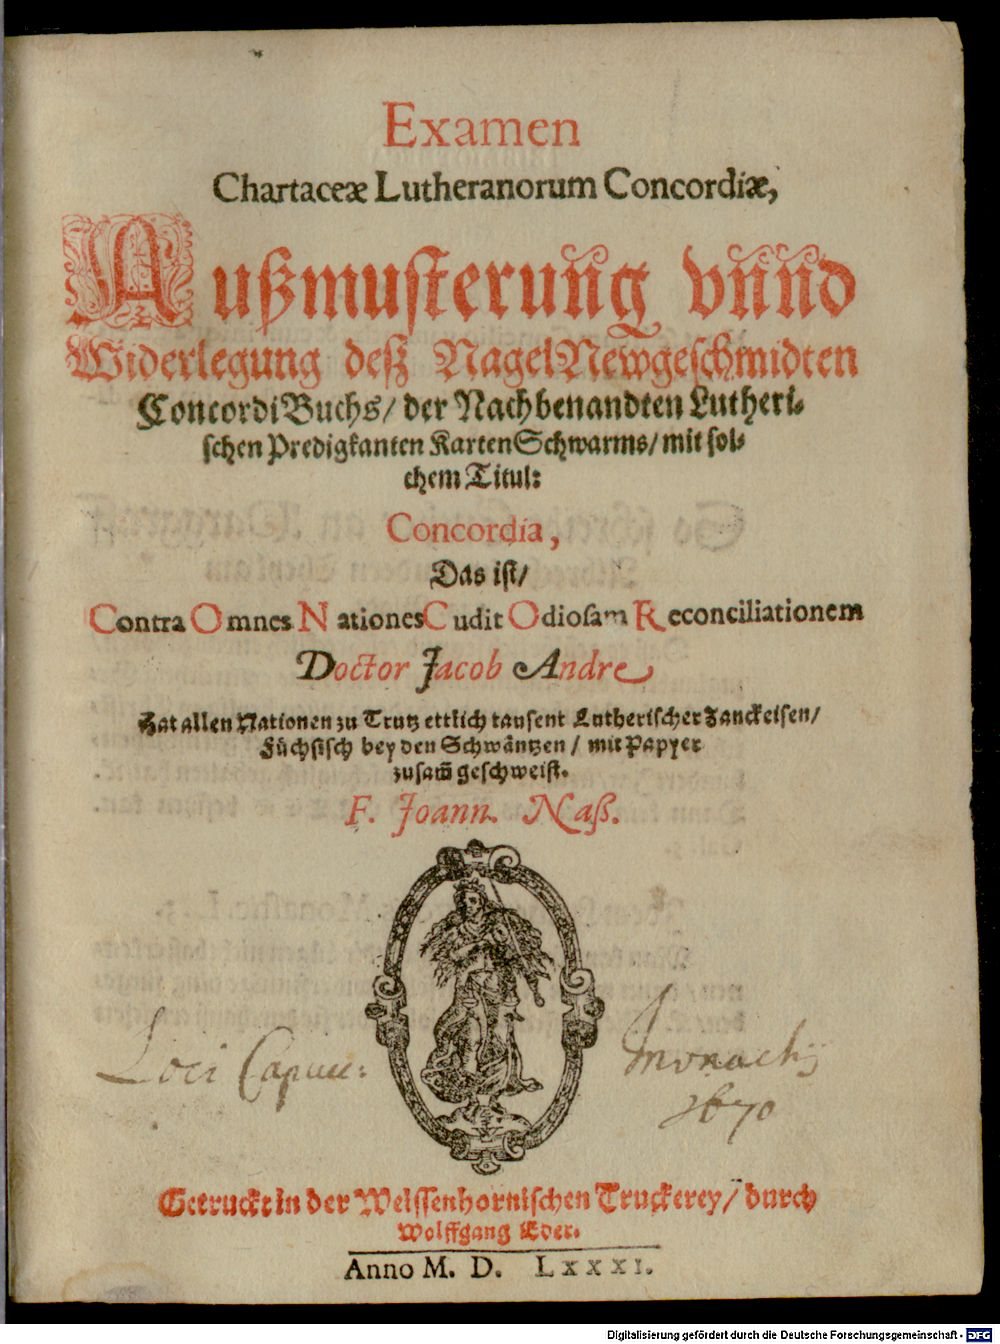 Examen
Chartaceæ Lutheranorum Concordiæ,
Außmusterung vnnd
Widerlegung deß NagelNewgeschmidten
ConcordiBuchs/ der Nachbenandten Lutheri-
schen Predigkanten KartenSchwarms/ mit sol-
chem Titul:
Concordia,
Das ist/
Contra Omnes Nationes Cudit Odiosam Reconciliationem
Doctor Jacob Andre
Hat allen Nationen zu Trutz ettlich tausent Lutherischer Zanckeisen/
Füchsisch bey den Schwäntzen/ mit Papyer
zusam̃ geschweist.
F. Joann. Naß.
Loci Capuc: Monachij
1670
Getruckt in der Weissenhornischen Truckerey/ durch
Wolffgang Eder.
Anno M. D. LXXXI.
Digitalisierung gefördert durch die Deutsche Forschungsgemeinschaft - DFG